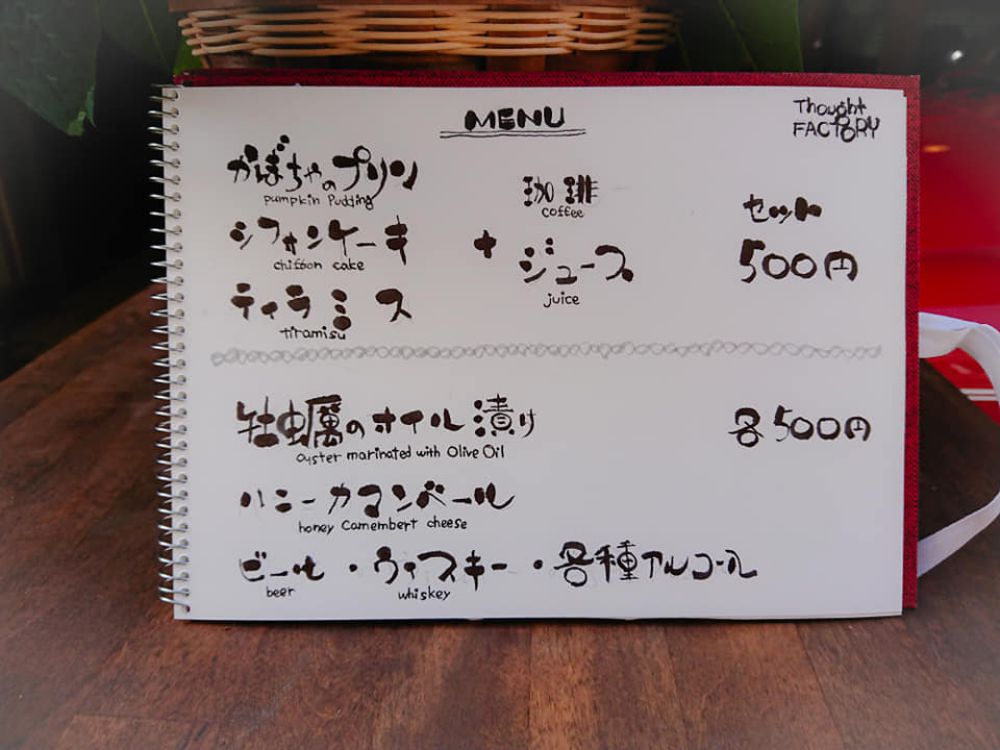 MENU
Thought
FACTORY
かぼちゃのプリン
pumpkin Pudding
シフォンケーキ
chiffon cake
ティラミス
tiramisu
+
珈琲
coffee
ジュース
juice
セット
500円
牡蠣のオイル漬け
oyster marinated with Olive Oil
各500円
ハニーカマンベール
honey Camembert cheese
ビール・ウィスキー・各種アルコール
beer
whiskey